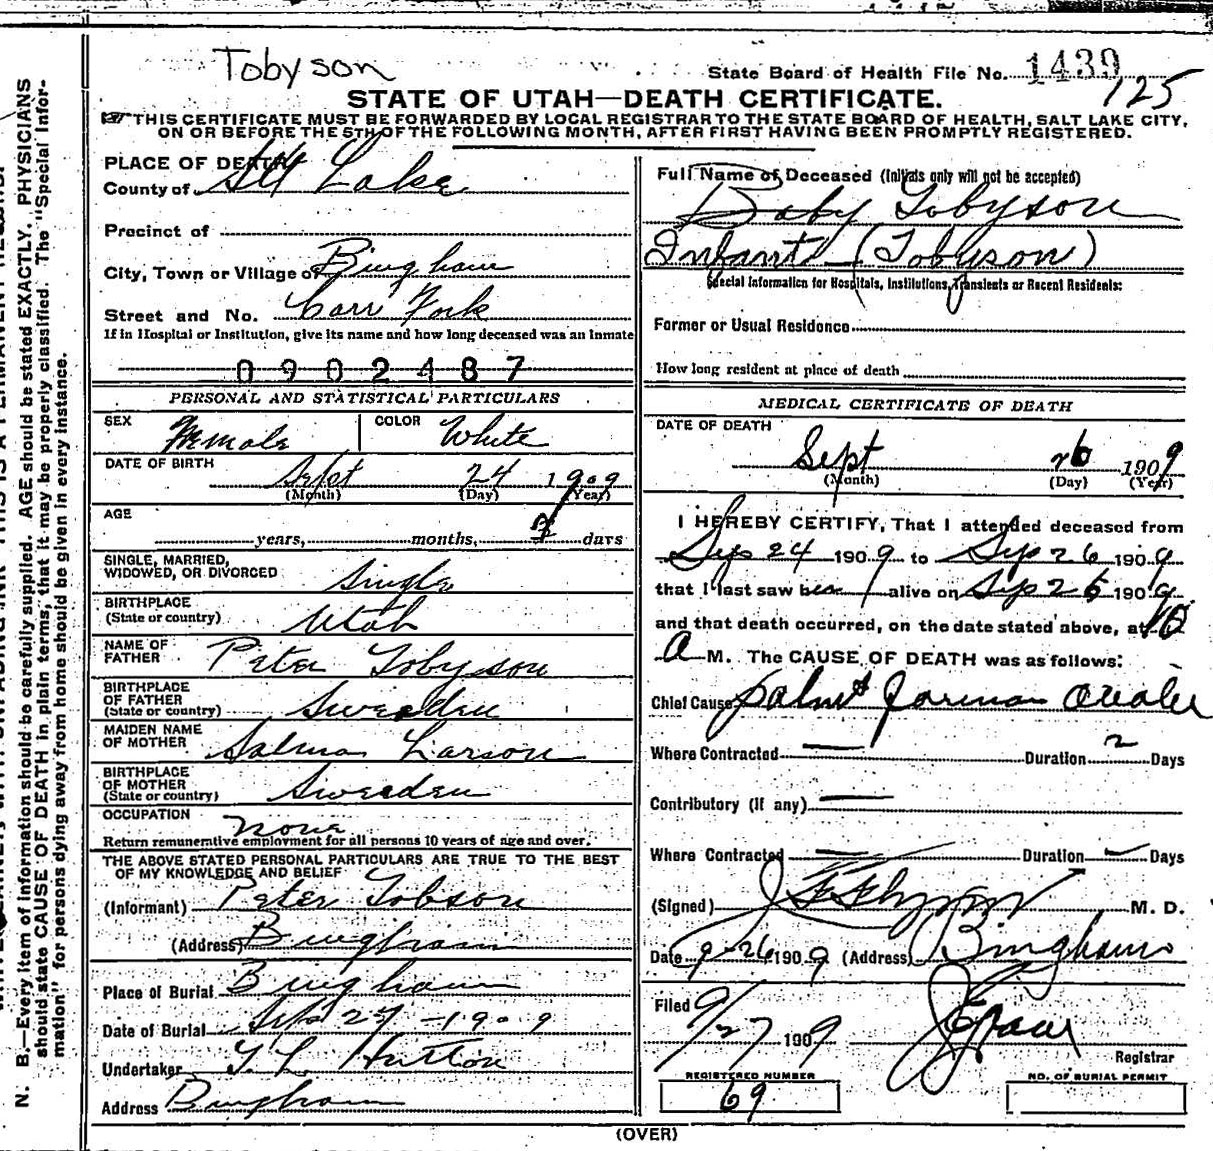 Tobyson
State Board of Health File No. 1439
125
STATE OF UTAH—DEATH CERTIFICATE.
THIS CERTIFICATE MUST BE FORWARDED BY LOCAL REGISTRAR TO THE STATE BOARD OF HEALTH, SALT LAKE CITY,
ON OR BEFORE THE 5TH OF THE FOLLOWING MONTH, AFTER FIRST HAVING BEEN PROMPTLY REGISTERED.
PLACE OF DEATH
County of Salt Lake
Precinct of
City, Town or Village of Bingham
Street and No. Carr Fork
If in Hospital or Institution, give its name and how long deceased was an inmate
0902487
PERSONAL AND STATISTICAL PARTICULARS
SEX Female COLOR White
DATE OF BIRTH Sept 24 1909
(Month) (Day) (Year)
AGE
years, months, days
SINGLE, MARRIED,
WIDOWED, OR DIVORCED Single
BIRTHPLACE
(State or country) Utah
NAME OF
FATHER Peter Tobyson
BIRTHPLACE
OF FATHER
(State or country) Sweeden
MAIDEN NAME
OF MOTHER Salma Larson
BIRTHPLACE
OF MOTHER
(State or country) Sweeden
OCCUPATION none
Return remunerative employment for all persons 10 years of age and over.
THE ABOVE STATED PERSONAL PARTICULARS ARE TRUE TO THE BEST
OF MY KNOWLEDGE AND BELIEF
(Informant) Peter Tobson
(Address) Bingham
Place of Burial Bingham
Date of Burial Sep 27 - 1909
Undertaker T. L. Hutton
Address Bingham
Full Name of Deceased (Initials only will not be accepted)
Baby Tobyson
Infant (Tobyson)
Special Information for Hospitals, Institutions, Transients or Recent Residents:
Former or Usual Residence
How long resident at place of death
MEDICAL CERTIFICATE OF DEATH
DATE OF DEATH
Sept 26 1909
(Month) (Day) (Year)
I HEREBY CERTIFY, That I attended deceased from
Sep 24 1909 to Sep 26 1909
that I last saw her alive on Sep 26 1909
and that death occurred, on the date stated above, at 10
A M. The CAUSE OF DEATH was as follows:
Chief Cause
Where Contracted — Duration 2 Days
Contributory (if any) —
Where Contracted — Duration — Days
(Signed) M. D.
Date 9-26 1909 (Address) Bingham
Filed 9/27 1909
Registrar
REGISTERED NUMBER
69
NO. OF BURIAL PERMIT
(OVER)
N. B.—Every item of information should be carefully supplied. AGE should be stated EXACTLY. PHYSICIANS
should state CAUSE OF DEATH in plain terms, that it may be properly classified. The "Special Infor-
mation" for persons dying away from home should be given in every instance.